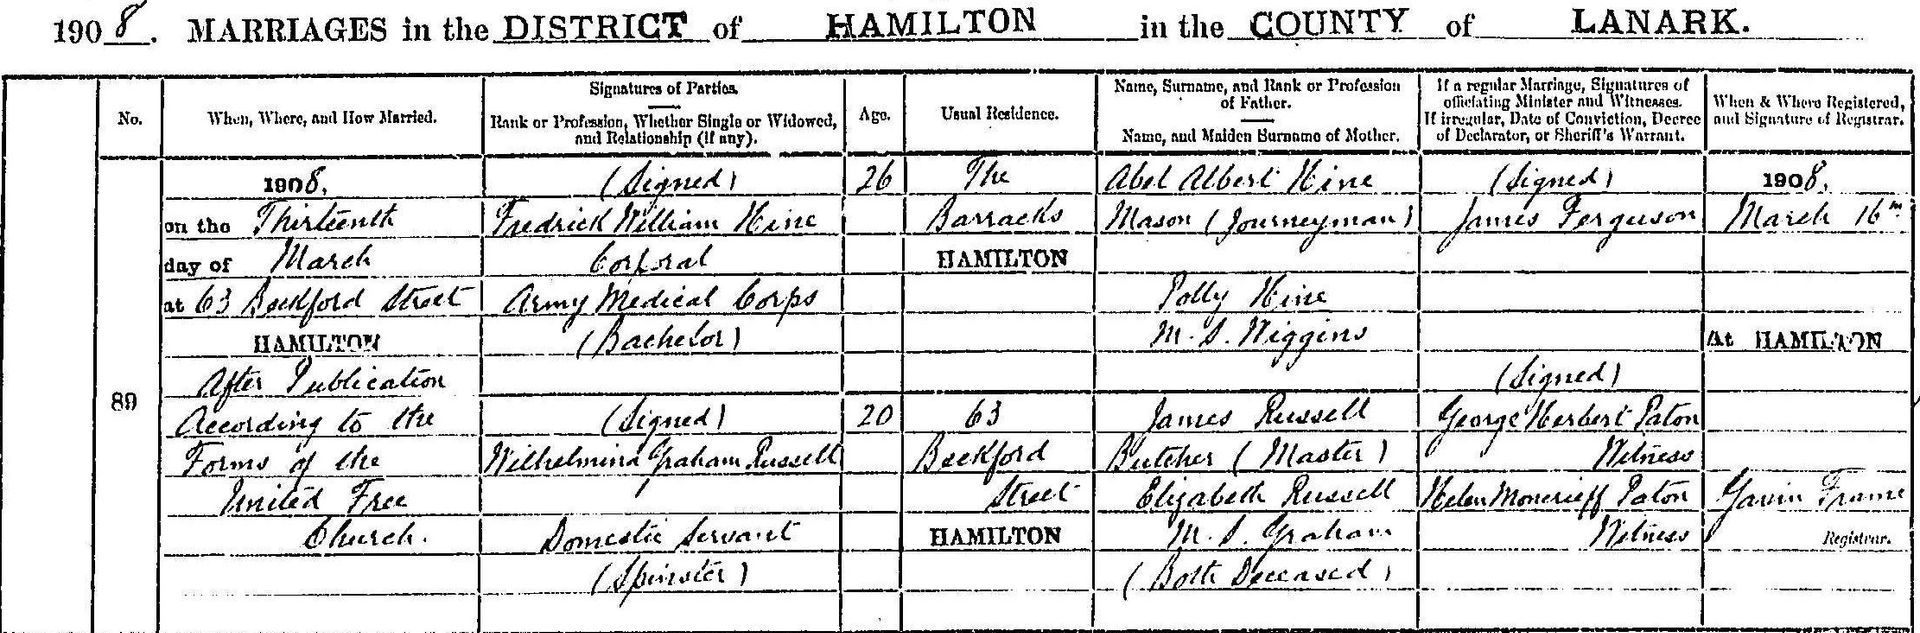 1908. MARRIAGES in the DISTRICT of HAMILTON in the COUNTY of LANARK.
No.
When, Where, and How Married.
Signatures of Parties.
Rank or Profession, Whether Single or Widowed,
and Relationship (if any).
Age.
Usual Residence.
Name, Surname, and Rank or Profession
of Father.
Name, and Maiden Surname of Mother.
If a regular Marriage, Signatures of
officiating Minister and Witnesses.
If irregular, Date of Conviction, Decree
of Declarator, or Sheriff's Warrant.
When & Where Registered,
and Signature of Registrar.
89
1908,
on the Thirteenth
day of March
at 63 Beckford Street
HAMILTON
After Publication
According to the
Forms of the
United Free
Church.
(Signed)
Fredrick William Hine
Corporal
Army Medical Corps
(Bachelor)
(Signed)
Wilhelmina Graham Russell
Domestic Servant
(Spinster)
26
20
The
Barracks
HAMILTON
63
Beckford
Street
HAMILTON
Abel Albert Hine
Mason (Journeyman)
Polly Hine
M. S. Wiggins
James Russell
Butcher (Master)
Elizabeth Russell
M. S. Graham
(Both Deceased)
(Signed)
James Ferguson
(Signed)
George Herbert Paton
Witness
Helen Moncrieff Paton
Witness
1908,
March 16th
At HAMILTON
Gavin Frame
Registrar.